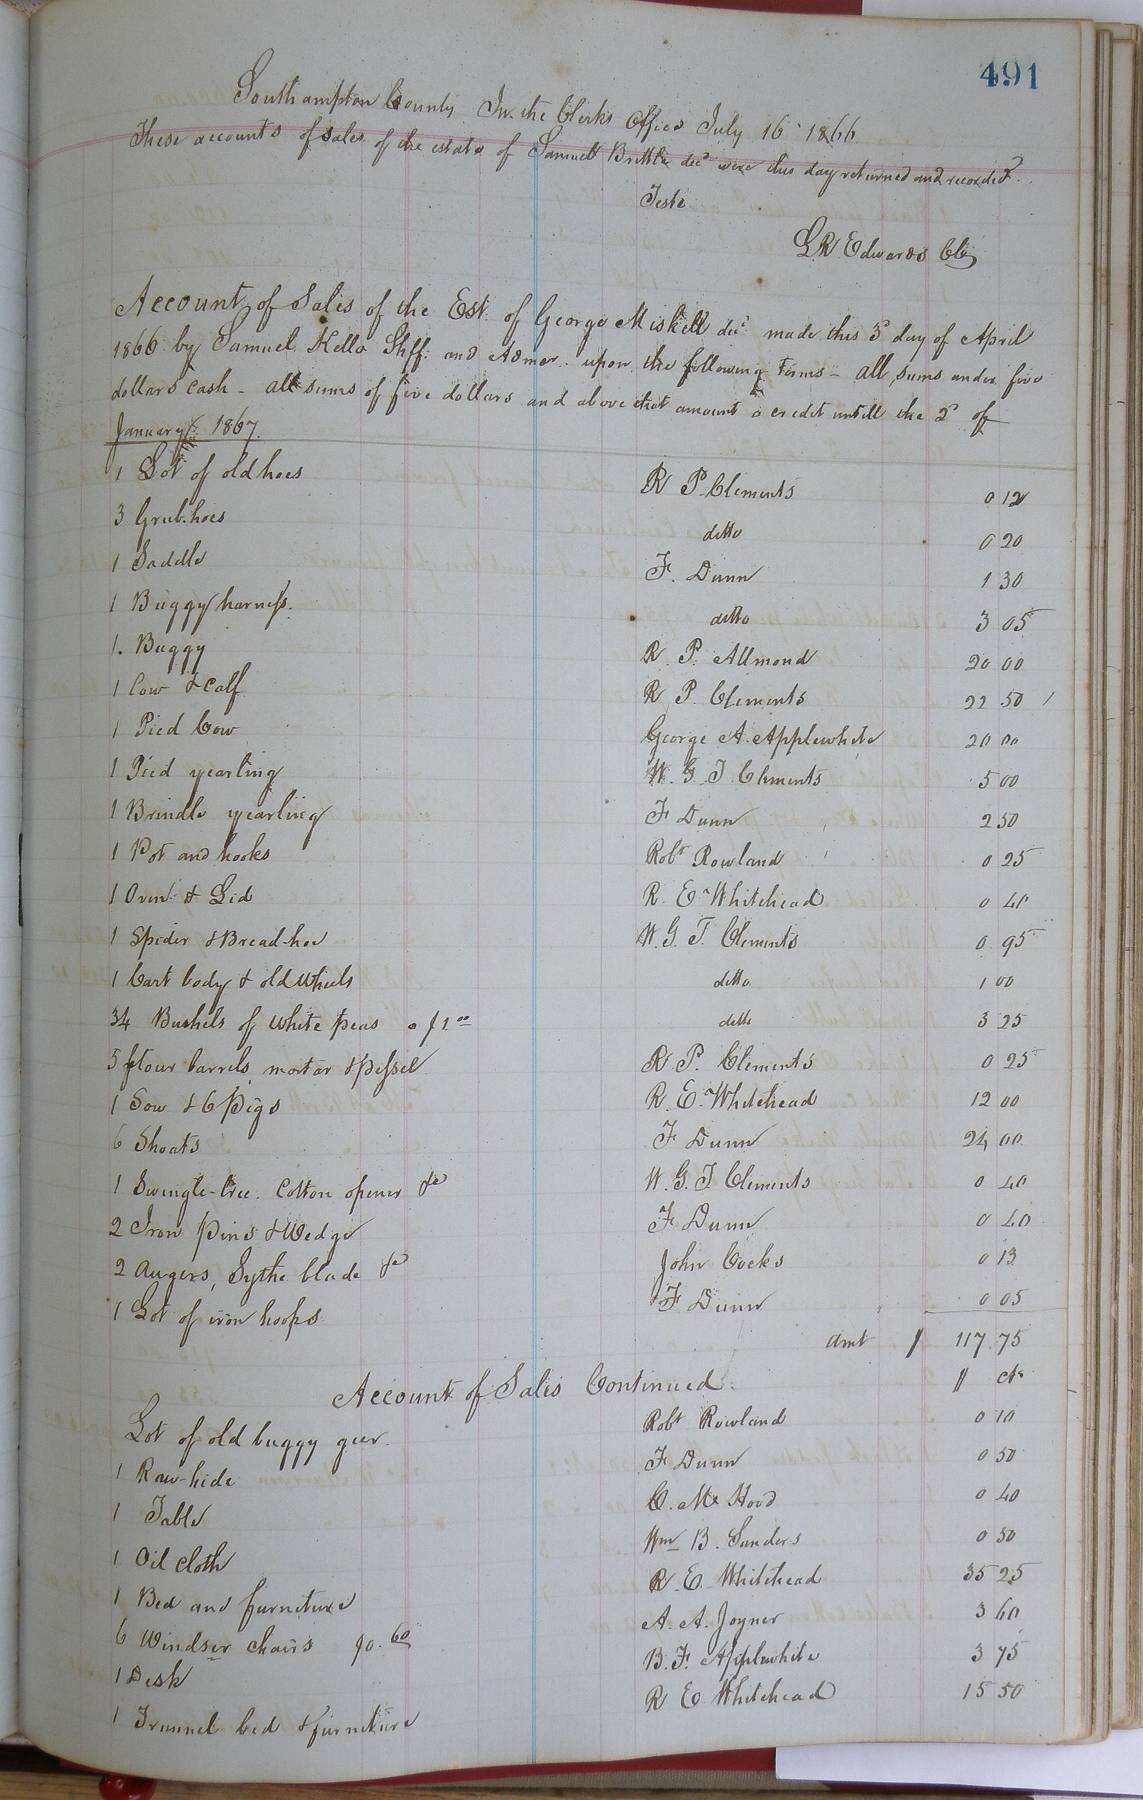 491
Southampton County In the Clerks Office July 16 1866
These accounts of sales of the estate of Samuel Brittle decd were this day returned and recorded.
Teste
L.R. Edwards Clk
Account of Sales of the Est. of George Miskell decd made this 3d day of April
1866 by Samuel Kello Shff. and Admor. upon the following terms - all sums under five
dollars cash - all sums of five dollars and above that amount a credit untill the 2d of
January 1867.
1 Lot of old hoes R P. Clements 0 12
3 Grub.hoes ditto 0 20
1 Saddle F. Dunn 1 30
1 Buggy harness. ditto 3 05
1. Buggy R. P. Allmond 20 00
1 Cow & Calf R P. Clements 22 50
1 Pied Cow George A. Applewhite 20 00
1 Pied yearling W. G. T Clements 5 00
1 Brindle yearling F Dunn 2 50
1 Pot and hooks Robt Rowland 0 25
1 Oven & Lid R. E. Whitehead 0 40
1 Spider & Bread-hoe W. G. T. Clements 0 95
1 Cart body & old Wheels ditto 1 00
34 Bushels of white peas ditto 3 25
5 flour barrels, mortar & pessel R P. Clements 0 25
1 Sow & 6 Pigs R. E. Whitehead 12 00
6 Shoats F Dunn 24 00
1 Swingle-tree. Cotton opener &c W. G. T Clements 0 40
2 Iron pins & Wedge F Dunn 0 40
2 Augers, Sythe blade &c John Cocks 0 13
1 Lot of iron hoops F Dunn 0 05
amt $ 117 75
Account of Sales Continued. $ cts
Lot of old buggy gear. Robt Rowland 0 10
1 Raw-hide F Dunn 0 50
1 Table C. Mc Hood 0 40
1 Oil cloth Wm B. Sanders 0 50
1 Bed and furniture R. E. Whitehead 35 25
6 Windser chairs $0. 60 A. A. Joyner 3 60
1 Desk B. F. Applewhite 3 75
1 Trunnel bed & furniture R E Whitehead 15 50